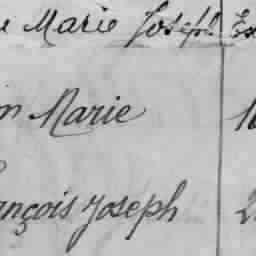 e Marie Joseph Ex
n Marie 1
ançois Joseph 2